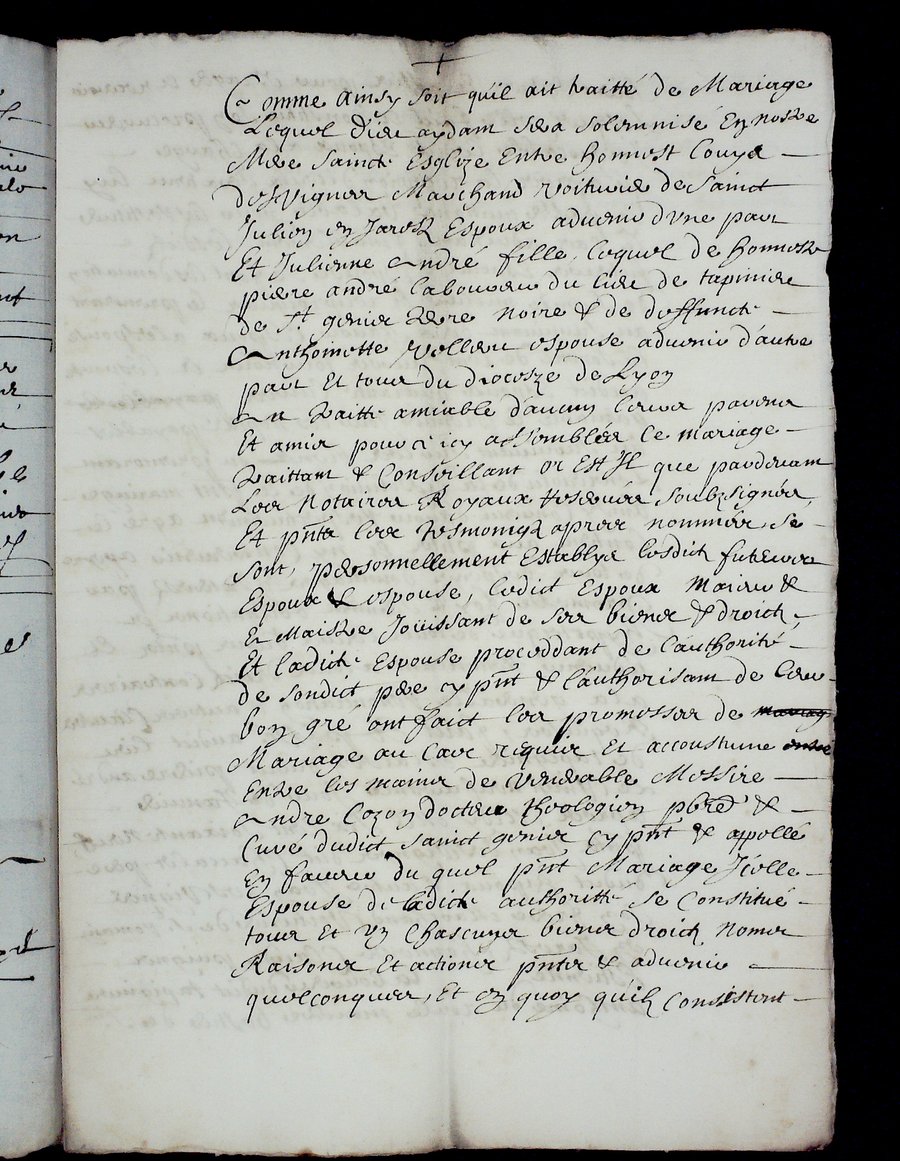 +
Comme ainsy soit qu'il ait traitté de Mariage
Lequel Dieu aydant sera solemnisé En nostre
Mere saincte Esglize Entre honnest Louys
desVignes Marchand voiturie de sainct
Julien en Jarestz Espoux advenir d'vne part
Et Julienne André fille, lequel de honneste
pierre andré laboureur du lieu de tapinier
de St genier terre noire & de deffuncte
Anthoinette espouse advenir d'autre
part Et tous du dioceze de Lyon
traitté amiable d'aucuns leurs parens
Et amis pour ce icy assemblés le mariage
traittant & Conseillant or Est Il que pardevant
Les Notaires Royaux reservés soubzsignés,
Et pñts les tesmoingz apres nommés, se
sont, personnellement Establys lesdictz futeurs
Espoux & espouse, ledict Espoux maieur &
& Maistre Joüissant de ses biens & droictz,
Et ladicte Espouse proceddant de l'authorité
de sondict pere cy pñt & l'authorisant de leur
bon gré ont faict les promesses de mariag
Mariage au cas requis Et accoustume entre
Entre les mains de venerable Messire
Andre Cozon docteur theologien pbrē &
Curé dudict sainct genier cy pñt & appellé
En faveur du quel pñt Mariage Jcelle
Espouse de ladicte authoritté se Constitué
tous Et vn Chascuns biens droictz Noms
Raisons Et actions pñts & advenir
quelconques, Et en quoy qu'ilz Consistent